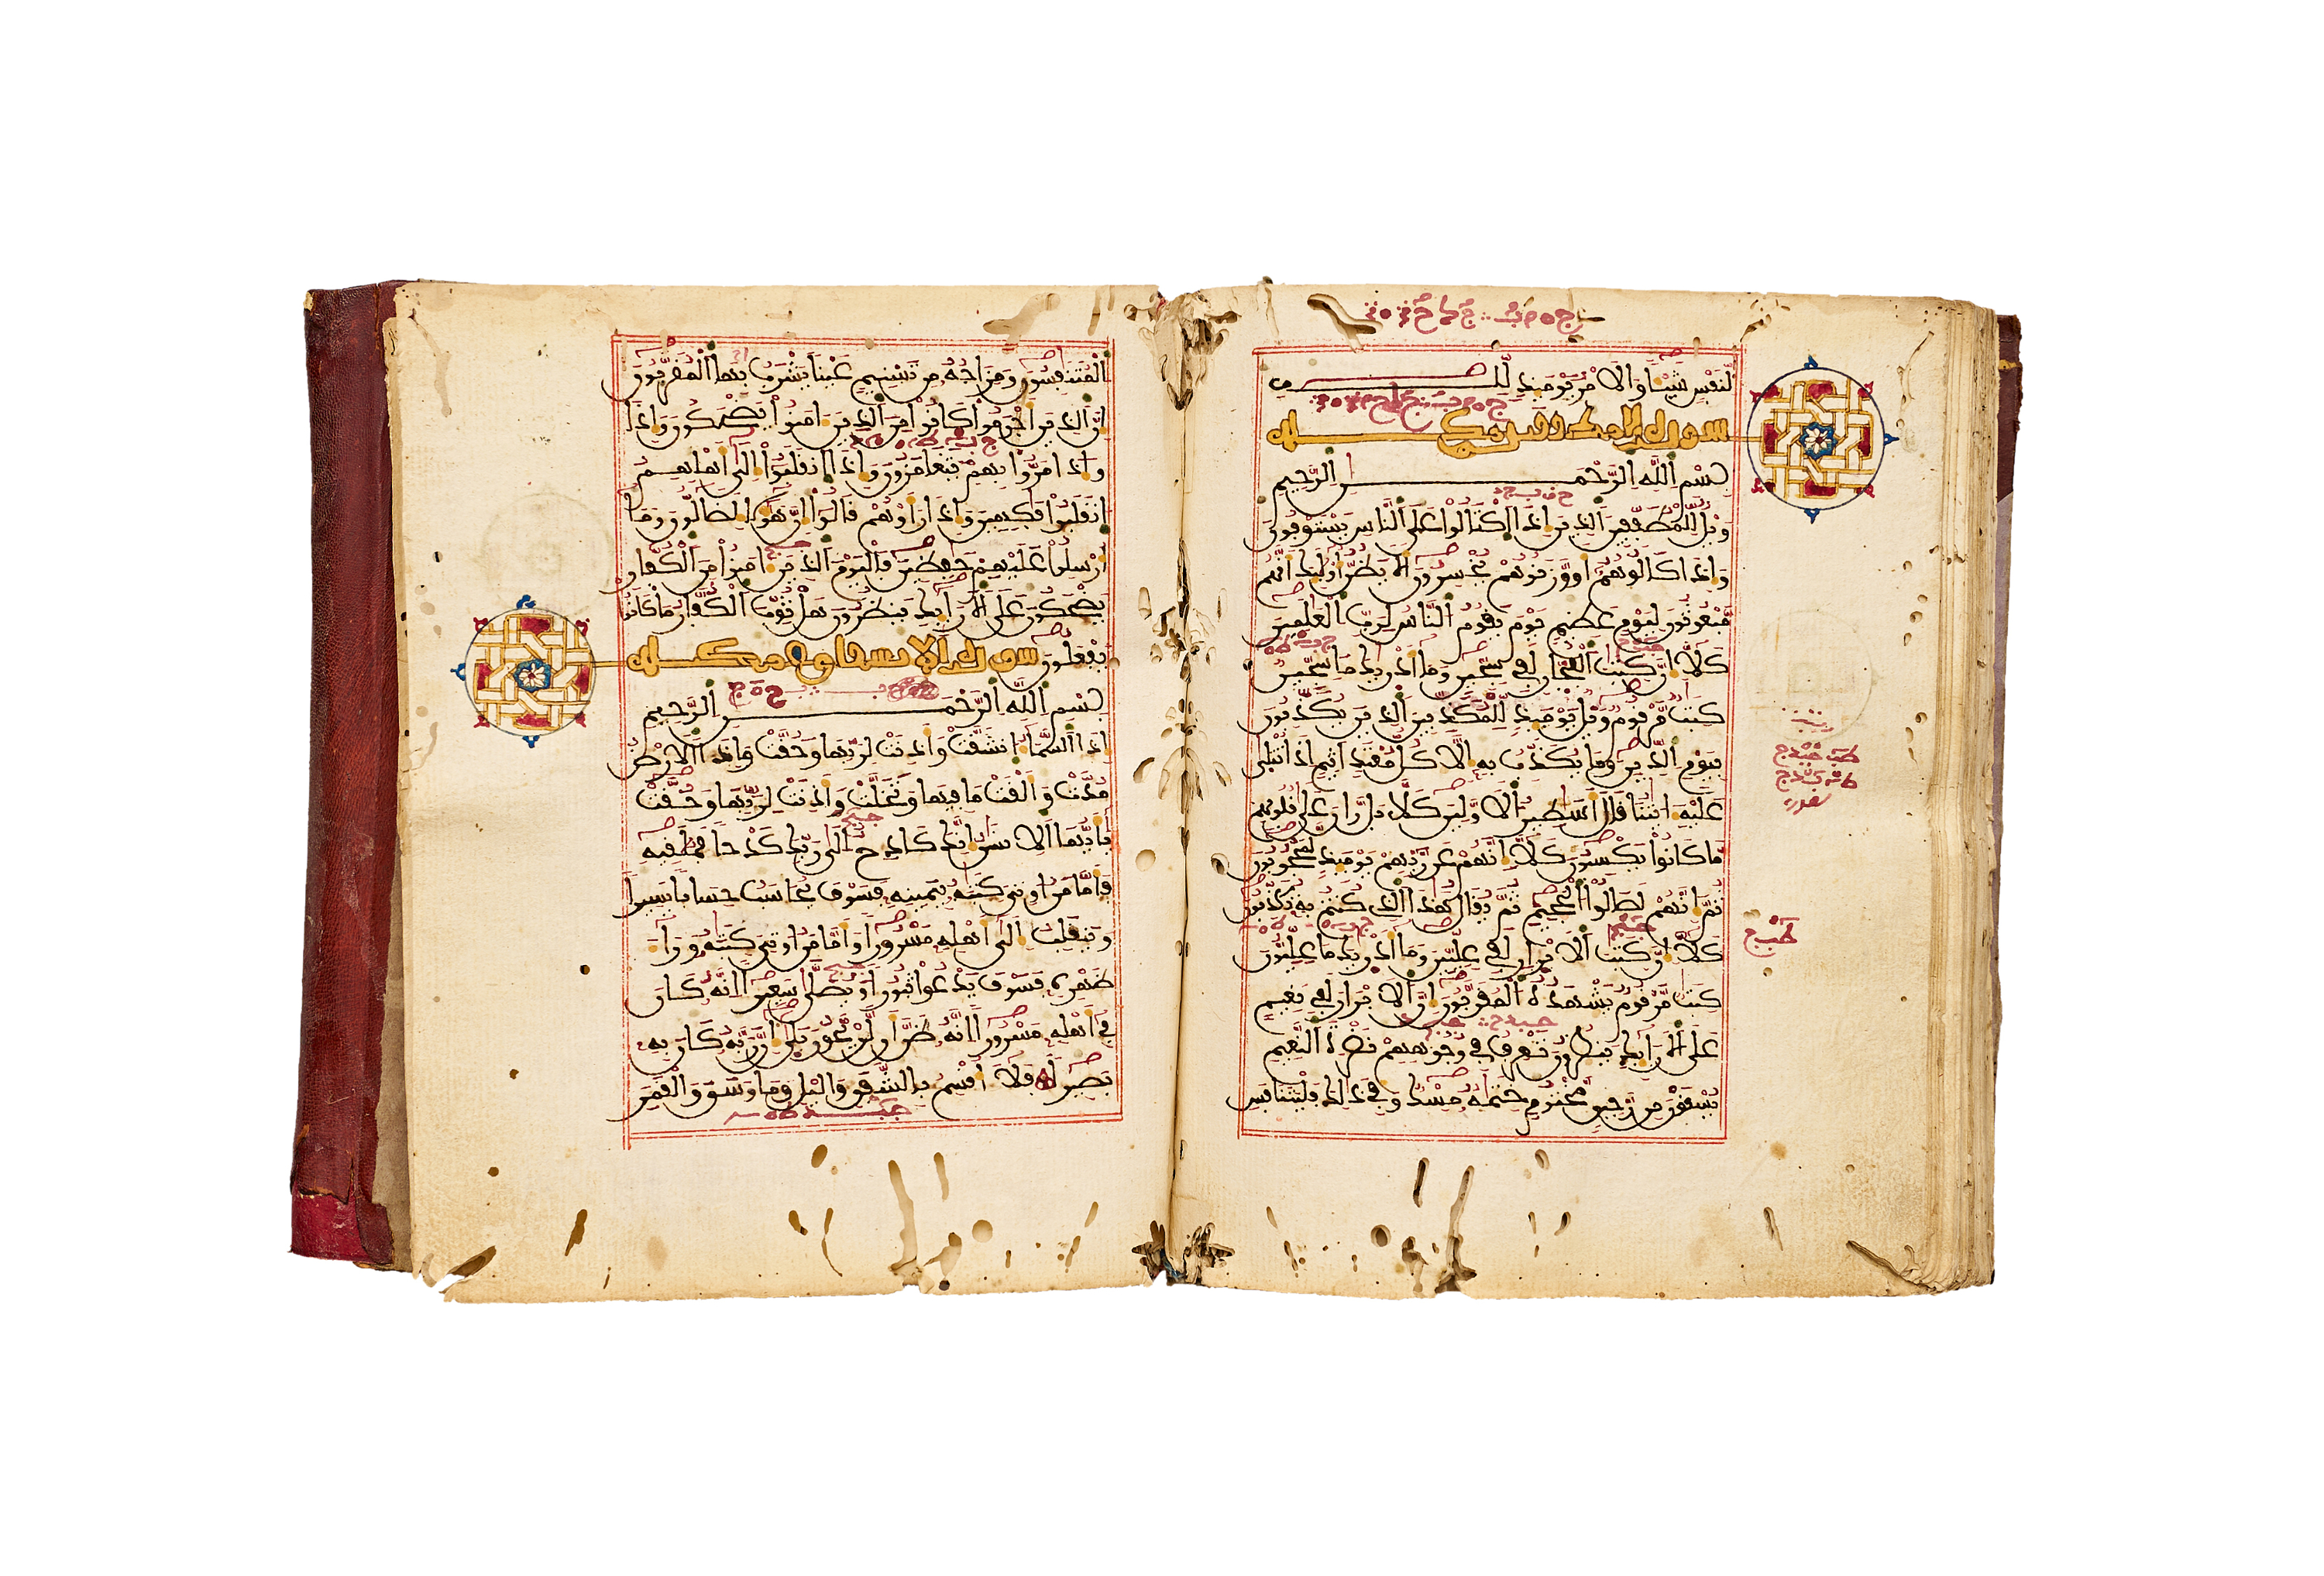 لِّنَفْسٍ شَيْـًٔا وَالَامْرُ يَوْمَئِذٍ لِّلهِ
سورة المطففين مكية
بِسْمِ اِللَّهِ اِلرَّحْمَٰنِ اِلرَّحِيمِ
وَيْلٌ لِّلْمُطَفِّفِينَ اَلذِينَ إِذَا اَكْتَالُوا عَلَى اَلنَّاسِ يَسْتَوْفُونَ
وَإِذَا كَالُوهُمُ أَو وَّزَنُوهُمْ يُخْسِرُونَ أَلَا يَظُنُّ أُوْلَٰئِكَ أَنَّهُم
مَّبْعُوثُونَ لِيَوْمٍ عَظِيمٍ يَوْمَ يَقُومُ اُلنَّاسُ لِرَبِّ اِلْعَٰلَمِينَ
كَلَّا إِنَّ كِتَٰبَ اَلْفُجِّارِ لَفِي سِجِّينٍ وَمَا أَدْرَيٰكَ مَا سِجِّينٌ
كِتَٰبٌ مَّرْقُومٌ وَيْلٌ يَوْمَئِذٍ لِّلْمُكَذِّبِينَ اَلذِينَ يُكَذِّبُونَ
بِيَوْمِ اِلدِّينِ وَمَا يُكَذِّبُ بِهِ إِلَّا كُلُّ مُعْتَدٍ اَثِيمٍ اِذَا تُتْلَىٰ
عَلَيْهِ ءَايَٰتُنَا قَالَ أَسَٰطِيرُ اُلَاوَّلِينَ كَلَّا بَل رَّانَ عَلَىٰ قُلُوبِهِم
مَّا كَانُوا يَكْسِبُونَ كَلَّا إِنَّهُمْ عَن رَّبِّهِمْ يَوْمَئِذٍ لَّمَحْجُوبُونَ
ثُمَّ إِنَّهُمْ لَصَالُوا اُلْجَحِيمِ ثُمَّ يُقَالُ هَٰذَا اَلذِي كُنتُم بِهِ تُكَذِّبُونَ
كَلَّا إِنَّ كِتَٰبَ اَلَابْرِارِ لَفِي عِلِّيِّينَ وَمَا أَدْرَيٰكَ مَا عِلِّيُّونَ
كِتَٰبٌ مَّرْقُومٌ يَشْهَدُهُ اُلْمُقَرَّبُونَ إِنَّ اَلَابْرَارَ لَفِي نَعِيمٍ
عَلَى اَلَارَآئِكِ يَنظُرُونَ تَعْرِفُ فِي وُجُوهِهِمْ نَضْرَةَ اَلنَّعِيمِ
يُسْقَوْنَ مِن رَّحِيقٍ مَّخْتُومٍ خِتَٰمُهُ مِسْكٌ وَفِي ذَٰلِكَ فَلْيَتَنَافَسِ
اِلْمُتَنَٰفِسُونَ وَمِزَاجُهُ مِن تَسْنِيمٍ عَيْنًا يَشْرَبُ بِهَا اَلْمُقَرَّبُونَ
إِنَّ اَلذِينَ أَجْرَمُوا كَانُوا مِنَ اَلذِينَ ءَامَنُوا يَضْحَكُونَ وَإِذَا
وإذا مَرُّوا بِهِمْ يَتَغَامَزُونَ وَإِذَا اَنقَلَبُوا إِلَىٰ أَهْلِهِمُ
اُنقَلَبُوا فَٰكِهِينَ وَإِذَا رَأَوْهُمْ قَالُوا إِنَّ هَٰؤُلَاءِ لَضَالُّونَ وَمَا
أُرْسِلُوا عَلَيْهِمْ حَٰفِظِينَ فَالْيَوْمَ اَلذِينَ ءَامَنُوا مِنَ اَلْكُفِّارِ
يَضْحَكُونَ عَلَى اَلَارَآئِكِ يَنظُرُونَ هَلْ ثُوِّبَ اَلْكُفَّارُ مَا كَانُوا
يَفْعَلُونَ سورة الانشقاق مكية
بِسْمِ اِللَّهِ اِلرَّحْمَٰنِ اِلرَّحِيمِ
إِذَا اَلسَّمَاءُ اُنشَقَّتْ وَأَذِنَتْ لِرَبِّهَا وَحُقَّتْ وَإِذَا اَلَارْضُ
مُدَّتْ وَأَلْقَتْ مَا فِيهَا وَتَخَلَّتْ وَأَذِنَتْ لِرَبِّهَا وَحُقَّتْ
يَٰأَيُّهَا اَلِانسَٰنُ إِنَّكَ كَادِحٌ اِلَىٰ رَبِّكَ كَدْحًا فَمُلَٰقِيهِ
فَأَمَّا مَنُ اوتِيَ كِتَٰبَهُ بِيَمِينِهِ فَسَوْفَ يُحَاسَبُ حِسَابًا يَسِيرًا
وَيَنقَلِبُ إِلَىٰ أَهْلِهِ مَسْرُورًا وَأَمَّا مَنُ اوتِيَ كِتَٰبَهُ وَرَاءَ
ظَهْرِهِ فَسَوْفَ يَدْعُوا ثُبُورًا وَيُصَلَّىٰ سَعِيرًا اِنَّهُ كَانَ
فِي أَهْلِهِ مَسْرُورًا اِنَّهُ ظَنَّ أَن لَّنْ يَّحُورَ بَلَىٰ إِنَّ رَبَّهُ كَانَ بِهِ
بَصِيرًا فَلَا أُقْسِمُ بِالشَّفَقِ وَاليْلِ وَمَا وَسَقَ وَالْقَمَرِ